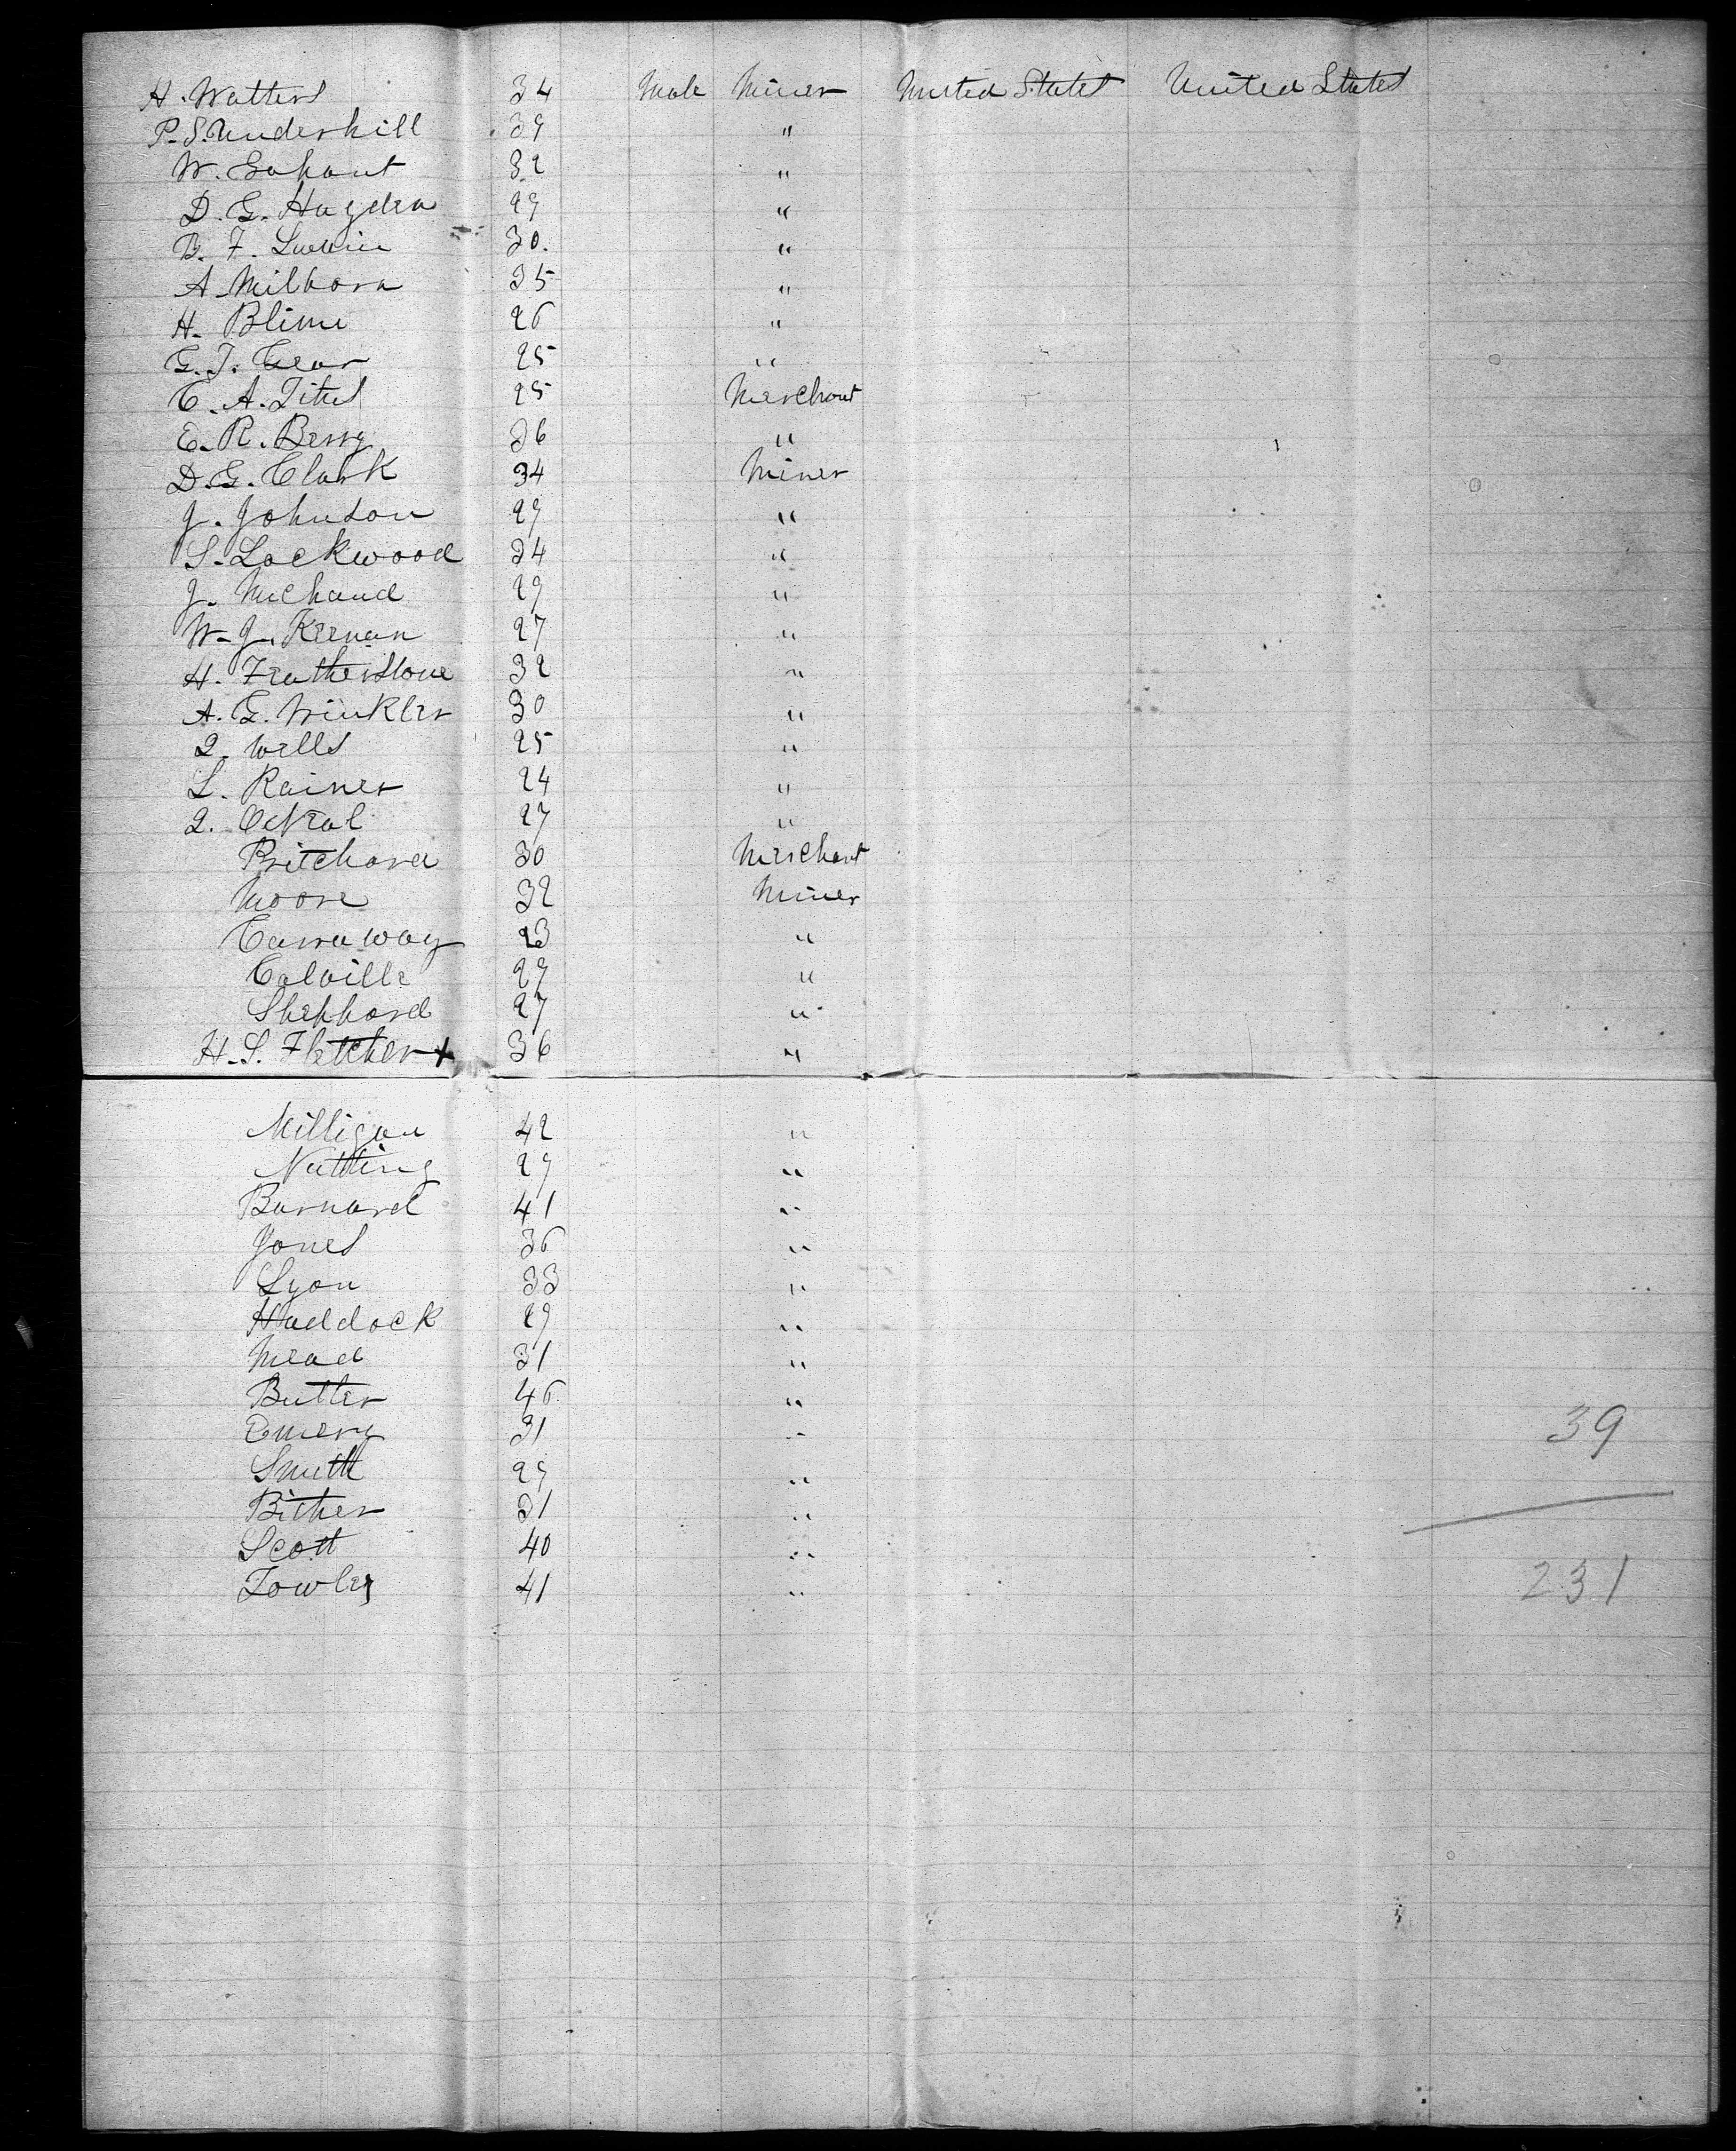 H. Watters 34 Male Miner United States United States
P. S. Underhill 39 "
W. Gohant 32 "
D. G. Hayden 29 "
B. F. 30. "
A Milborn 35 "
H. Blime 26 "
G. T. Crar 25 "
C. A. Titus 25 Merchant
E. R. Berry 36 "
D. G. Clark 34 Miner
J. Johnson 29 "
S. Lockwood 24 "
J. Michaud 29 "
W. J. Keenan 27 "
H. Featherstone 32 "
A. G. Winkler 30 "
Q. Wells 25 "
L. Rainer 24 "
Q. OcNeal 27 "
Pritchard 30 Merchant
Moore 32 Miner
Carraway 23 "
Colville 29 "
Shephard 27 "
H. S. Fletcher + 36 "
Milligan 42 "
Nutting 29 "
Barnard 41 "
Jones 36 "
Lyon 33 "
Haddock 29 "
Mead 31 "
Butler 46 "
Emery 31 "
39
Smith 29 "
Bither 31 "
Scott 40 "
Fowler 41 "
231